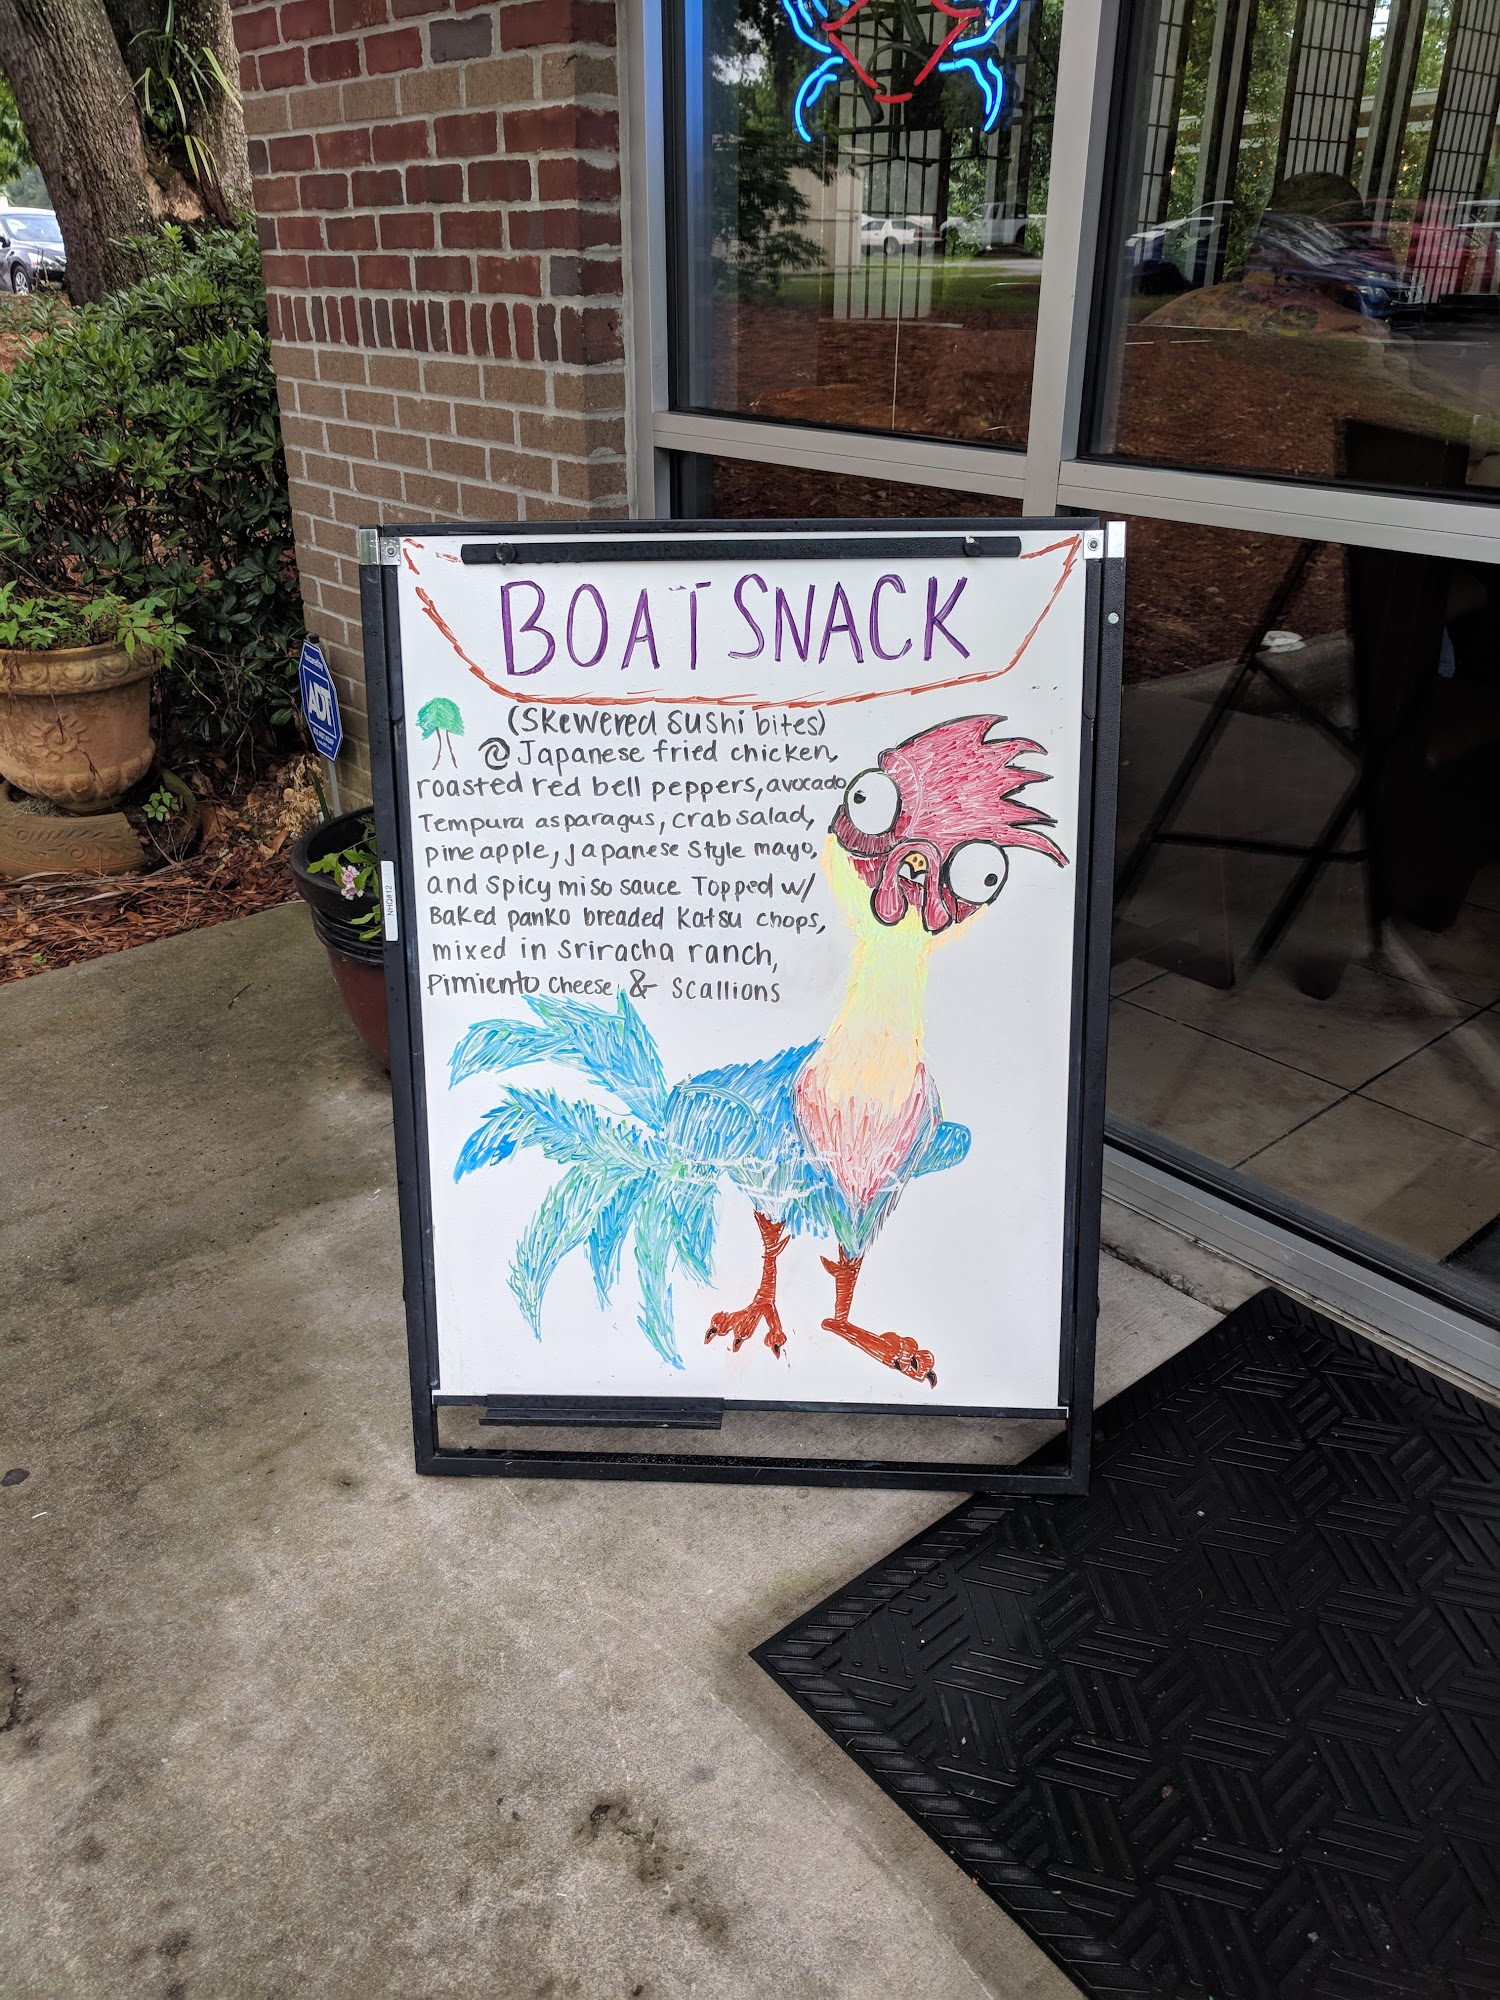 BOAT SNACK
(Skewered sushi bites)
Japanese fried chicken,
roasted red bell peppers, avocado
Tempura asparagus, crab salad,
pineapple, Japanese style mayo,
and spicy miso sauce Topped w/
Baked panko breaded Katsu chops,
mixed in Sriracha ranch,
Pimiento cheese, & scallions
ADT
NHQ#12